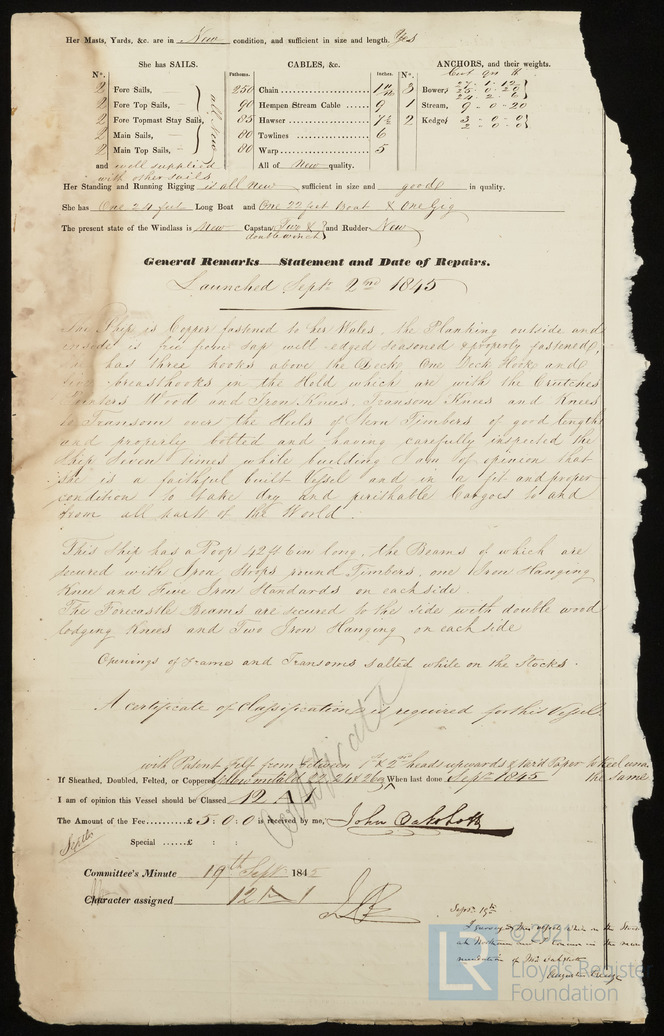 Her Masts, Yards, &c. are in New condition, and sufficient in size and length. Yes
She has SAILS. CABLES, &c. ANCHORS, and their weights.
N°. Fathoms. Inches. N°.
2 Fore Sails, 250 Chain 3 Bower
2 Fore Top Sails, 90 Hempen Stream Cable 9 1 Stream, 9-0-20
2 Fore Topmast Stay Sails, 85 Hawser 7½ 2 Kedge 3-0-0
2 Main Sails, 80 Towlines 6 2-0-0
2 Main Top Sails, 80 Warp 5
all New
and well supplied All of New quality.
with other sails
Her Standing and Running Rigging is all New sufficient in size and good in quality.
She has One 24 feet Long Boat and One 22 feet Boat & One Gig
The present state of the Windlass is New Capstan and Rudder New
General Remarks Statement and Date of Repairs.
Launched Sept. 2nd 1845
The Ship is Copper fastened to her Wales, the Planking outside and
inside is free from sap well edged seasoned & properly fastened,
has three hooks above the Deck, One Deck Hook and
breasthooks in the Hold which are with the Crutches
Pointers Wood and Iron Knees, Transom Knees and Knees
to Transom over the Heels of Stern Timbers of good lengths
and properly bolted and having carefully inspected the
Ship Seven times while building I am of opinion that
she is a faithful built Vessel and in a fit and proper
condition to take dry and perishable Cargoes to and
from all parts of the World.
This Ship has a Poop 42 ft 6 in long, the Beams of which are
secured with Iron Hoops round Timbers, one Iron Hanging
Knee and Five Iron Standards on each side.
The Forecastle Beams are secured to the side with double wood
lodging Knees and Two Iron Hanging on each side
Openings of Frame and Transoms salted while on the Stocks.
A certificate of Classification is required for this Vessel.
Certificate
with Patent Felt from 1st & 2nd heads upwards & Paper to Keel
If Sheathed, Doubled, Felted, or Coppered Yellow metald 22, 24 & 26oz When last done Sept. 1845 the same
I am of opinion this Vessel should be Classed 12 A 1
The Amount of the Fee......£ 5 : 0 : 0 is received by me, John
Special ......£ : :
Committee's Minute 19th Sept. 1845
Character assigned 12 A 1
Sept. 19th
© 2021
Lloyd's Register
Foundation
LR